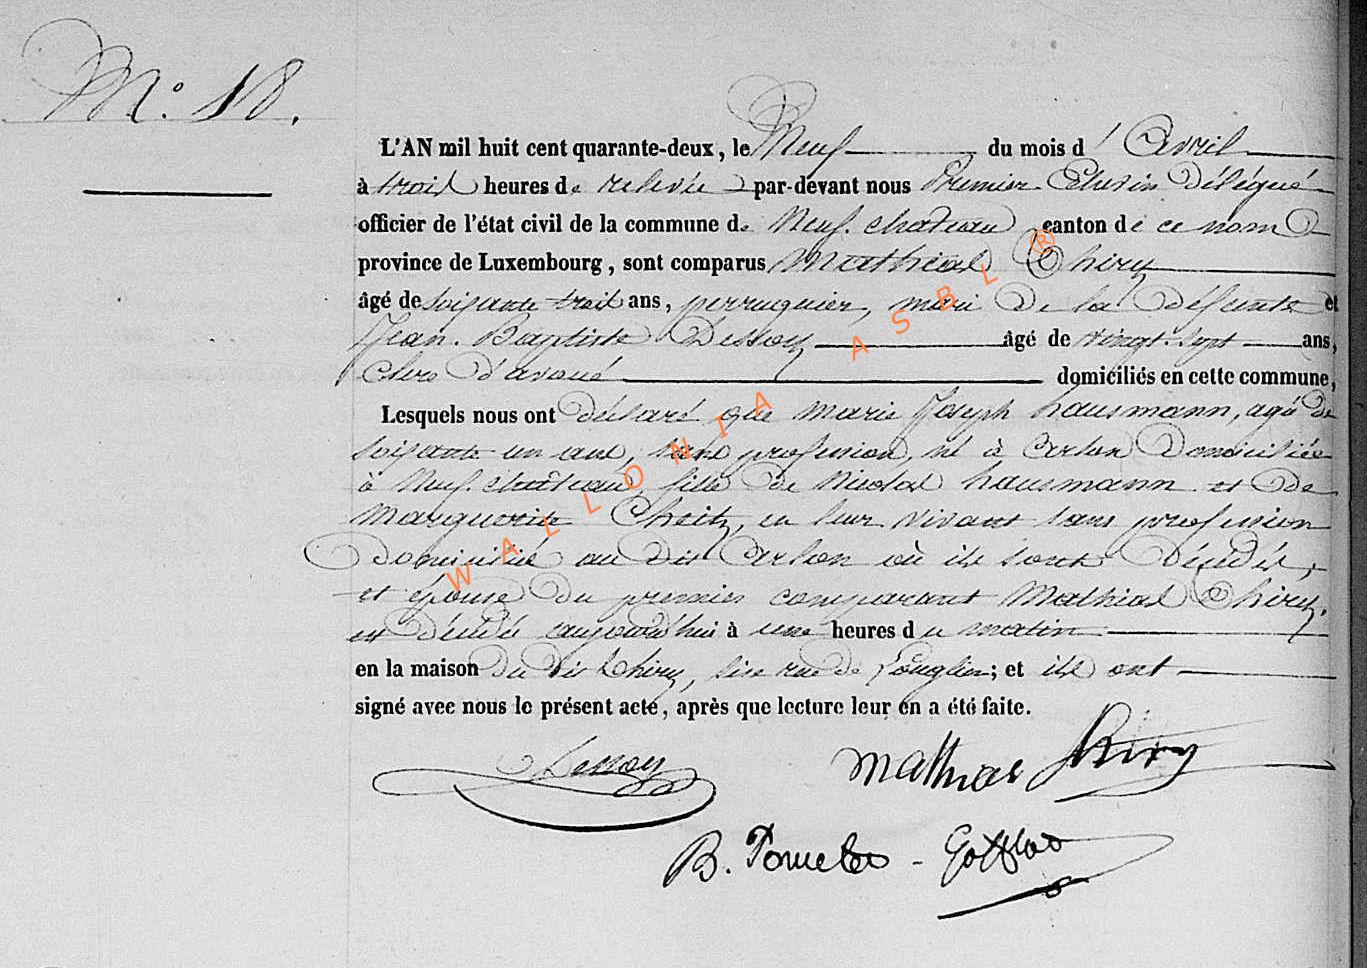 N.o 18.
L'AN mil huit cent quarante-deux, le Neuf du mois d'Avril
à trois heures de relevée par-devant nous Premier Echevin Délégué
officier de l'état civil de la commune de Neufchateau canton de ce nom
province de Luxembourg, sont comparus Mathias Thiry
âgé de soixante trois ans, perruquier, mari de la défunte et
Jean-Baptiste Dessoy âgé de vingt-sept ans,
Clerc d'avoué domiciliés en cette commune,
Lesquels nous ont déclaré que Marie Joseph Hausmann, agé de
soixante un ans, sans profession, né à Arlon Domiciliée
à Neufchâteau, fille de Nicolas Hausmann et de
Marguerite, en leur vivant sans profession
Domicilié au dit Arlon où ils sont décédés,
et épouse du premier comparant Mathias Thiry.
est décédé aujourd'hui à une heures du matin
en la maison du dit Thiry, sise rue de Longlier; et ils ont
signé avec nous le présent acte, après que lecture leur en a été faite.
Dessoy
Mathias Thiry
WALLONIA ASBL ®